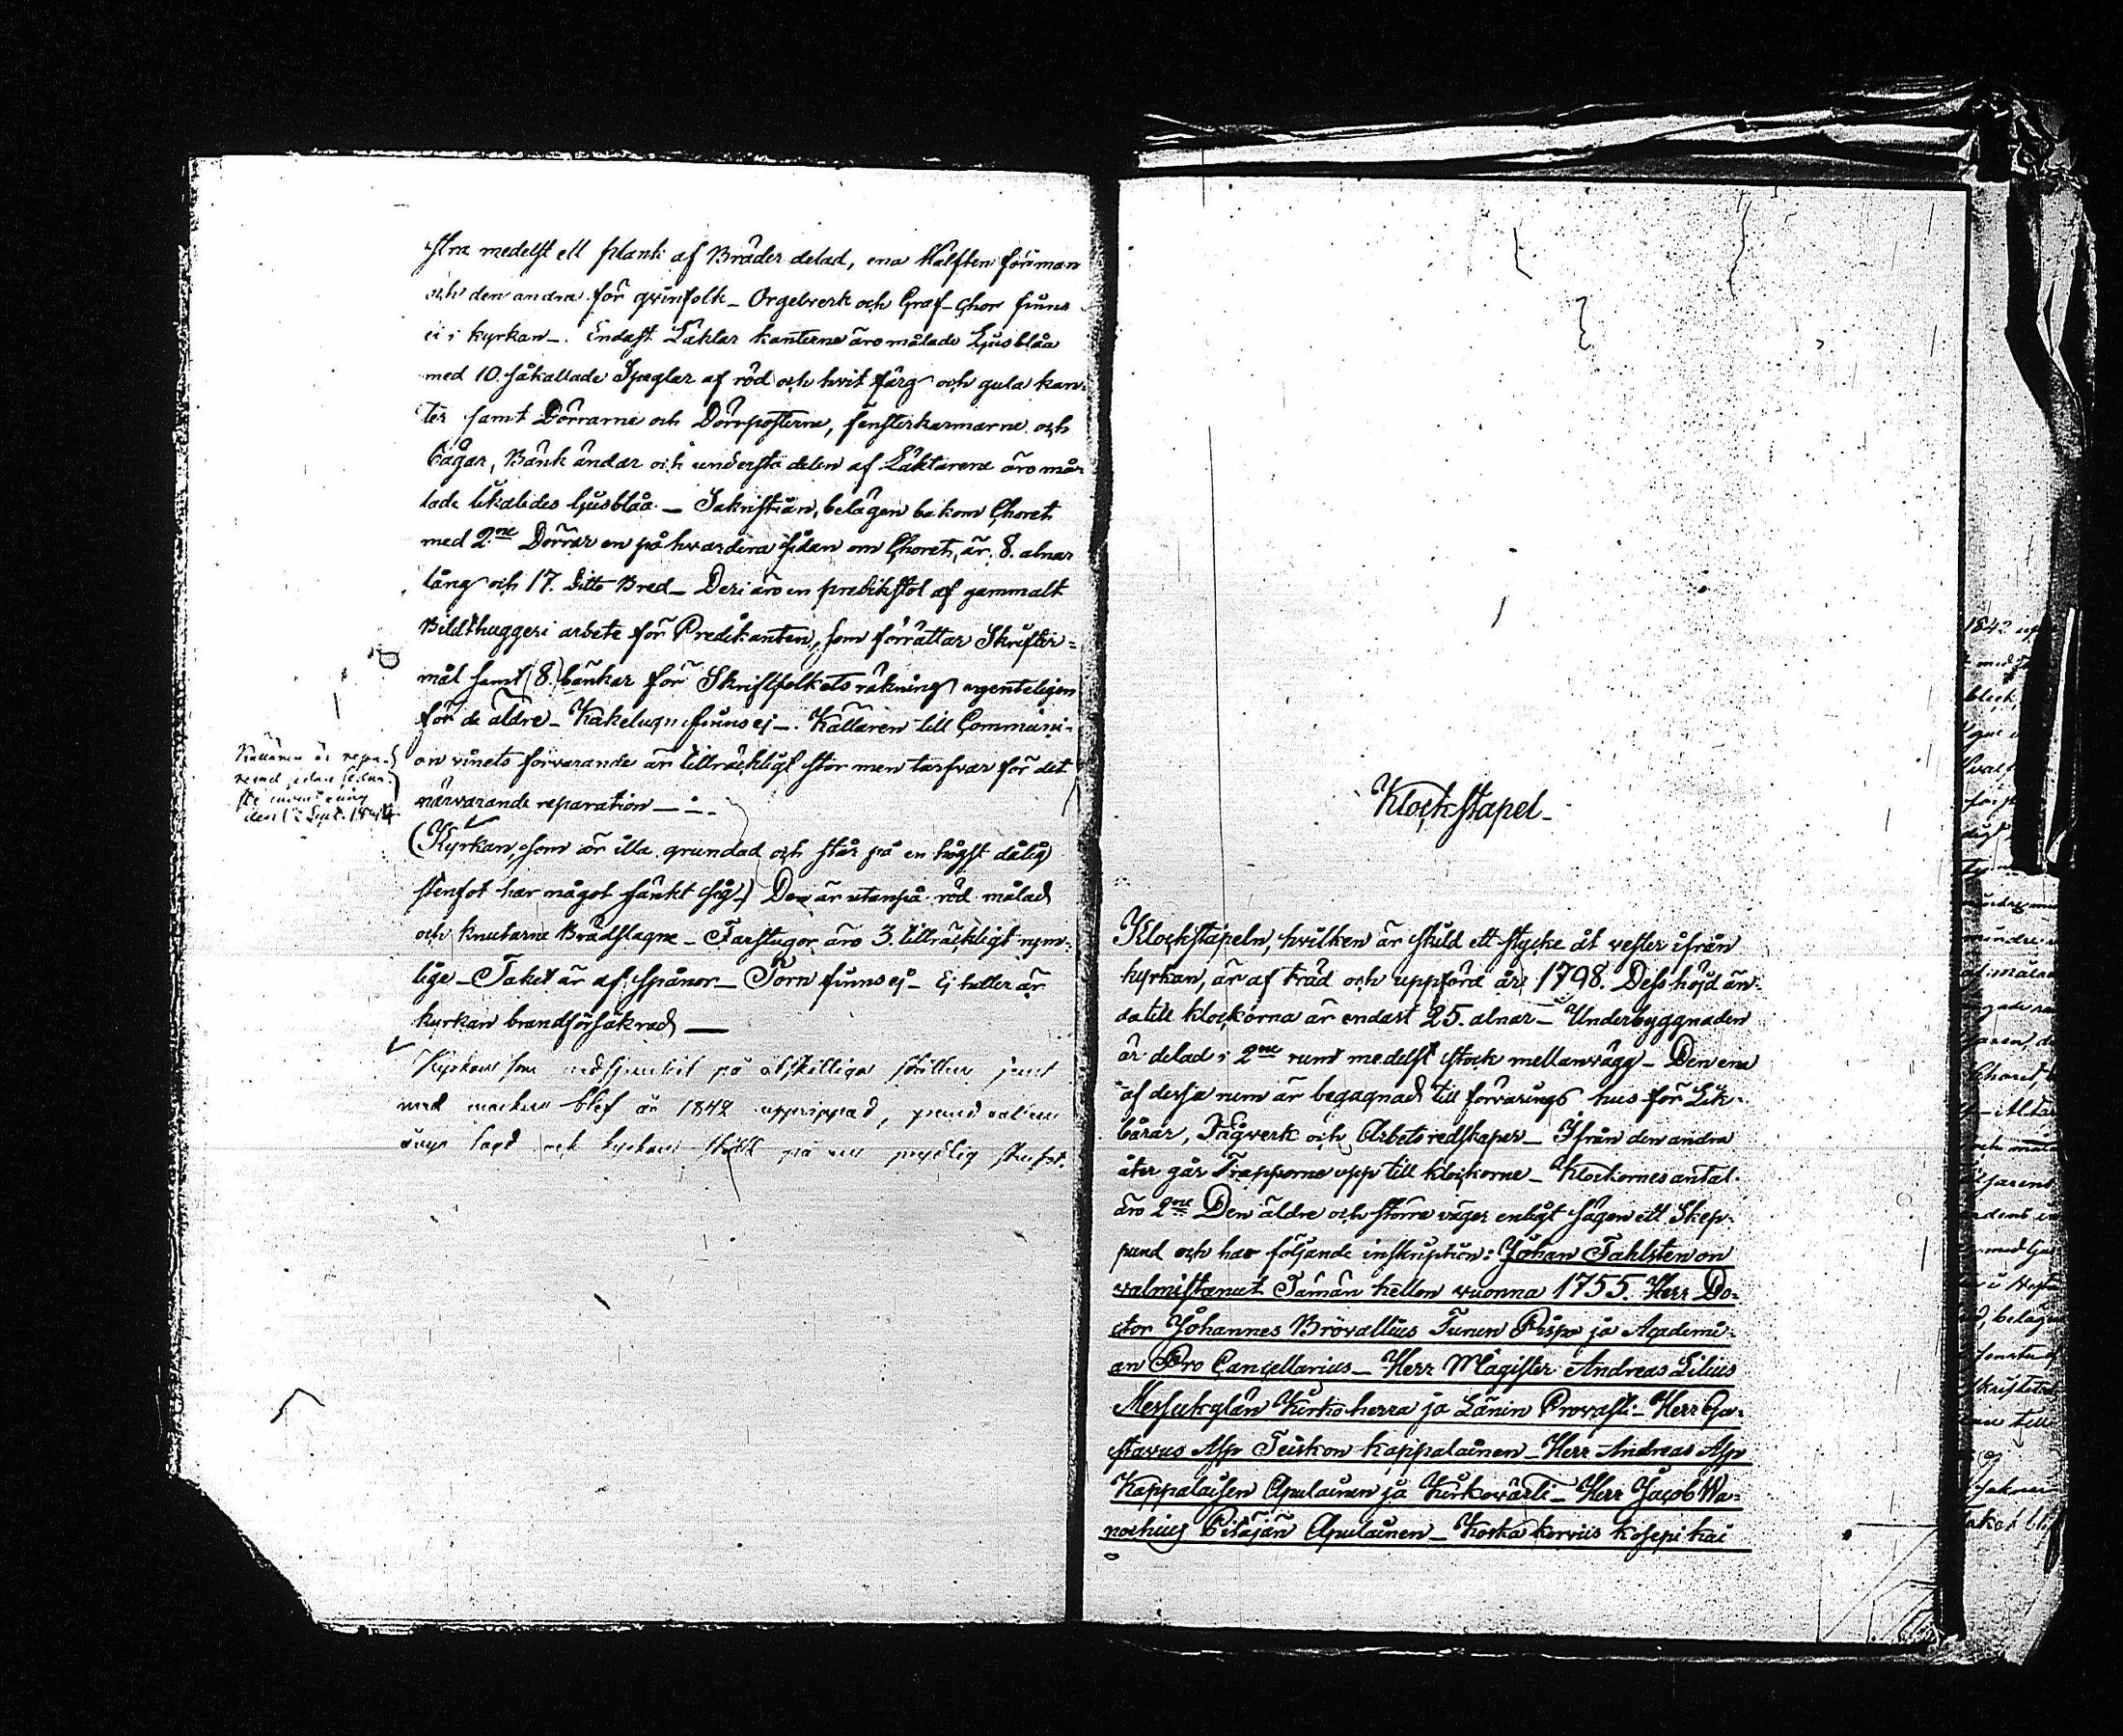 stra medelst ett plank af Bräder delad, ena hälften för man
och den andra för qvinfolk_ Orgelverk och Graf-Chor finns
ei i kyrkan_. Endast Läktar kanterne äro målade Ljusblåa
med 10. såkallade Speglar af röd och hvit färg och gula kan-
ter samt Dörrarne och Dörrposterne, fensterkarmarne och
bågar, Bänk ändar och understa delen af Läktarene äro må-
lade likaledes ljusblåa._ Sakristian, belägen bakom Choret
med 2ne Dörrar en på hvardera sidan om Choret, är 8. alnar
lång och 17. ditto Bred_ Deri äro en predikstol af gammalt
Bildthuggeri arbete för Predikanten, som förrättar Skrifter=
mål samt 8. bänkar för Skriftfolkets räkning egenteligen
för de äldre_ Kakelugn finns ej_. Källaren till Communi-
on vinets förvarande är tillräckligt stor men tarfvar för det
närvarande reparation_._
Källaren är repa-
rerad sedan sedna-
ste
den Sept. 18
(Kyrkan, som är illa grundad och står på en högst dålig
stenfot har något sänkt sig_) Den är utanpå röd målad
och knutarne Brädslagne_ Farstugor äro 3. tillräckligt rym-
lige_ Taket är af spånor_ Torn finns ej_ Ej heller är
kyrkan brandförsäkrad_
Kyrkan som nedsjunkit på åtskilliga ställen samt
med blef år 1842 upprippad, grund
ånyo lagd och kyrkan ställd på en prydlig stenfot.
Klockstapel_
Klockstapeln, hvilken är skild ett stycke åt vester ifrån
kyrkan, är af träd och uppförd år 1798. Dess höjd än-
da till klockorna är endast 25. alnar_ Underbyggnaden
är delad i 2ne rum medelst stock mellanvägg_ Den ena
af dessa rum är begagnad till förvarings hus för Lik-
bårar, Tågverk och Arbetsredskaper_ Ifrån den andra
åter går Trapporne upp till klockorne_ Klockornes antal
äro 2ne Den äldre och större väger enligt sägen ett Skep-
pund och har följande inskription: Johan Fahlsten on
valmistanut Tämän kellon vuonna 1755. Herr Do-
ctor Johannes Brovallius Turun Pispa ja Academi-
an Pro Cancellarius_ Herr Magister Andreas Lilius
Messukylän Kirkoherra ja Länin Provasti_ Herr Gu-
stavus Asp Teiskon kappalainen_ Herr Andreas Asp
Kappalaisen Apulainen ja Kirkovärti_ Herr Jacob Wa-
nochius Pitäjän Apulainen_ Koska korviis kosepi kai